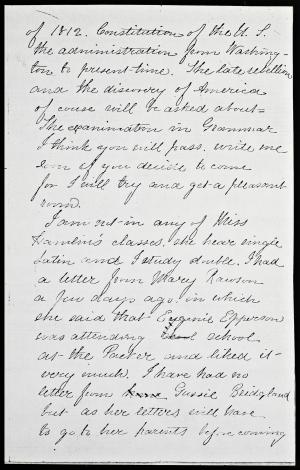 of 1812. Constitution of the U. S.
the administration from Washing-
ton to present time. The late rebellion
and the discovery of America
of couse will be asked about-
The examination in Grammar
I think you will pass. write me
soon if you decide to come
for I will try and get a pleasant
room.
I am not in any of Miss
Hamlin's classes. she hear single
Latin and I study double. I had
a letter from Mary Rawson
a few days ago in which
she said that Eugenie Epperson
was attending school
at the Packer and liked it
very much. I have had no
letter from Gussie Bridgland
but as her letters will have
to go to her parents before coming